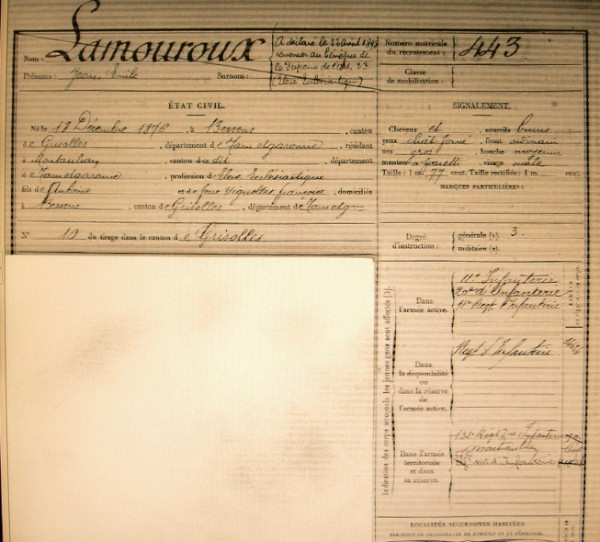 Nom : Lamouroux
Prénoms : Jean Emile Surnom :
A déclaré le 22 avril 1897
renoncer au bénéfice de
la dispense de l'art. 23
(Elève Ecclésiastique)
Numéro matricule
du recrutement : 443
Classe
de mobilisation :
ÉTAT CIVIL.
Né le 13 Décembre 1876, à Bessens, canton
de Grisolles, département de Tarn et Garonne, résidant
à Montauban, canton du dit, département
de Tarn et garonne, profession d' Elève Ecclésiastique
fils de Antoine et de feue Vignolles françoise, domiciliés
à Bessens, canton de Grisolles, département de Tarn et G
N° 10 de tirage dans le canton de Grisolles
SIGNALEMENT.
Cheveux et sourcils bruns
yeux front
nez gros, bouche moyenne
menton visage ovale
Taille : 1 m. 77 cent. Taille rectifiée : 1 m. cent.
MARQUES PARTICULIÈRES :
Degré
d'instruction :
générale (1). 3.
militaire (2).
Indication des corps auxquels les jeunes gens sont affectés (3).
Dans
l'armée active.
11e Infanterie
d'Infanterie
Regt d'Infanterie
Dans
la disponibilité
ou
dans la réserve
de
l'armée active.
Regt d'Infanterie
Dans l'armée
territoriale
et dans
sa réserve.
Regt d'Infanterie
Montauban
d'Infanterie
LOCALITÉS SUCCESSIVES HABITÉES